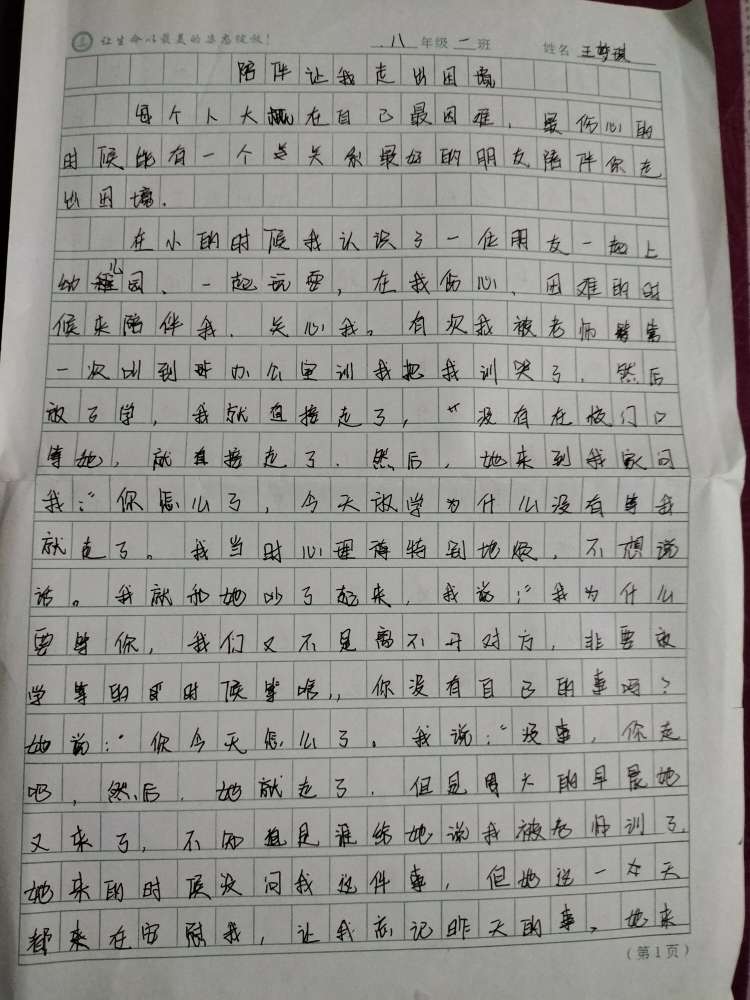 让生命以最美的姿态绽放！ 八年级一班 姓名王梦琪
陪伴让我走出困境
每个人大概在自己最困难，最伤心的
时候能有一个关系最好的朋友陪伴你走
出困境。
在小的时候我认识了一位朋友一起上
幼稚儿园、一起玩耍，在我伤心、困难的时
候来陪伴我、关心我。有次我被老师第
一次叫到办公室训我把我训哭了，然后
放了学，我就直接走了，没有在校门口
等她，就直接走了，然后，她来到我家问
我：“你怎么了，今天放学为什么没有等我
就走了。我当时心理特别地烦，不想说
话。我就和她吵了起来，我说：“我为什么
要等你，我们又不是离不开对方，非要放
学等的时候等啥，，你没有自己的事吗？
她说：“你今天怎么了。我说：“没事，你走
吧，然后，她就走了，但是第天的早晨她
又来了，不知道是谁给她说我被老师训了，
她来的时候没问我这件事，但她这一天
都来在安慰我，让我忘记昨天的事。她来
（第1页）